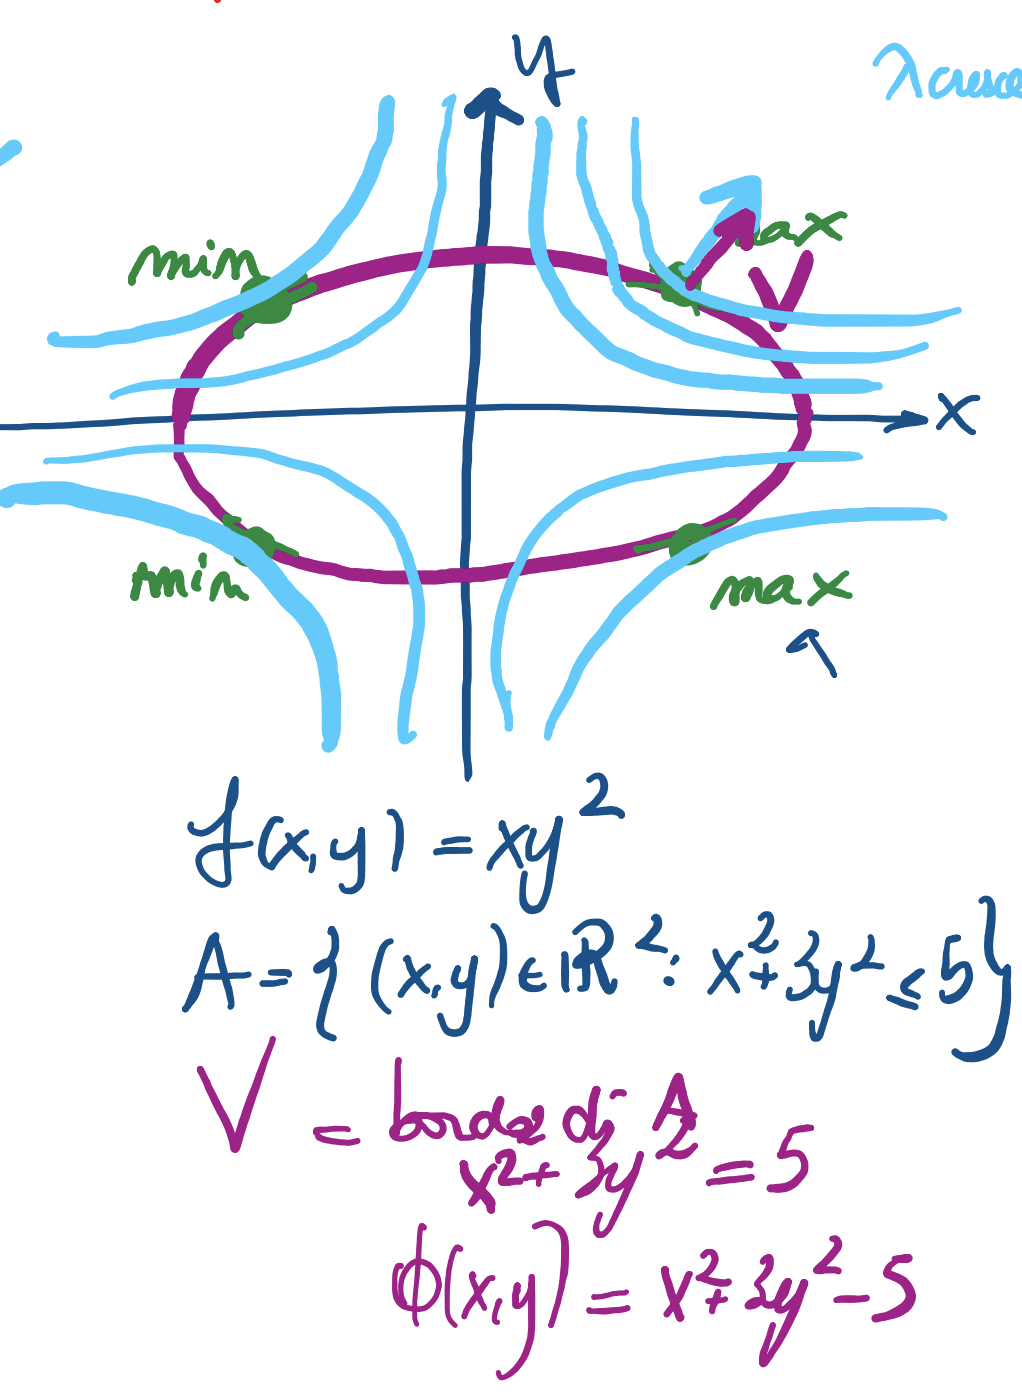 y
λ cresce
min
max
V
x
min
max
f(x,y) = xy²
A = { (x,y) ∈ ℝ² : x² + 3y² ≤ 5 }
V = bordo di A
x² + 3y² = 5
ϕ(x,y) = x² + 3y² - 5